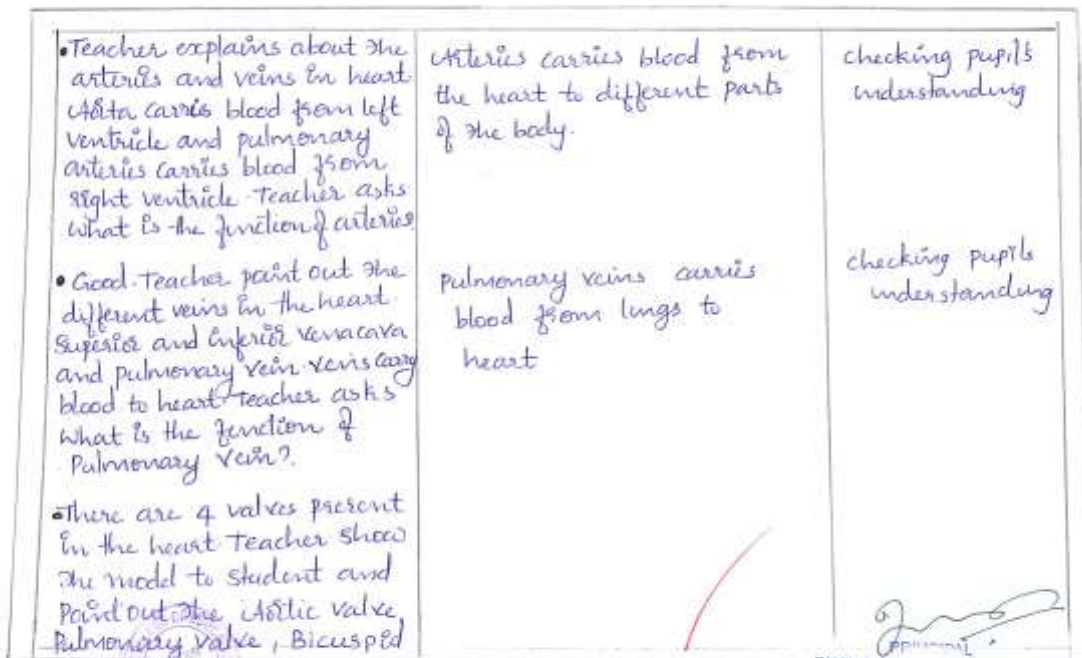 •Teacher explains about the
arteries and veins in heart
Aorta carries blood from left
ventricle and pulmonary
arteries carries blood from
right ventricle. Teacher asks
what is the function of arteries
• Good. Teacher point out the
different veins in the heart.
Superior and inferior venacava
and pulmonary vein. veins carry
blood to heart. Teacher asks
what is the function of
Pulmonary vein?
•There are 4 valves present
in the heart Teacher show
the model to student and
Point out the Aortic valve,
Pulmonary valve, Bicuspid
Arteries carries blood from
the heart to different parts
of the body.
Pulmonary veins carries
blood from lungs to
heart
checking pupils
understanding
checking pupils
understanding